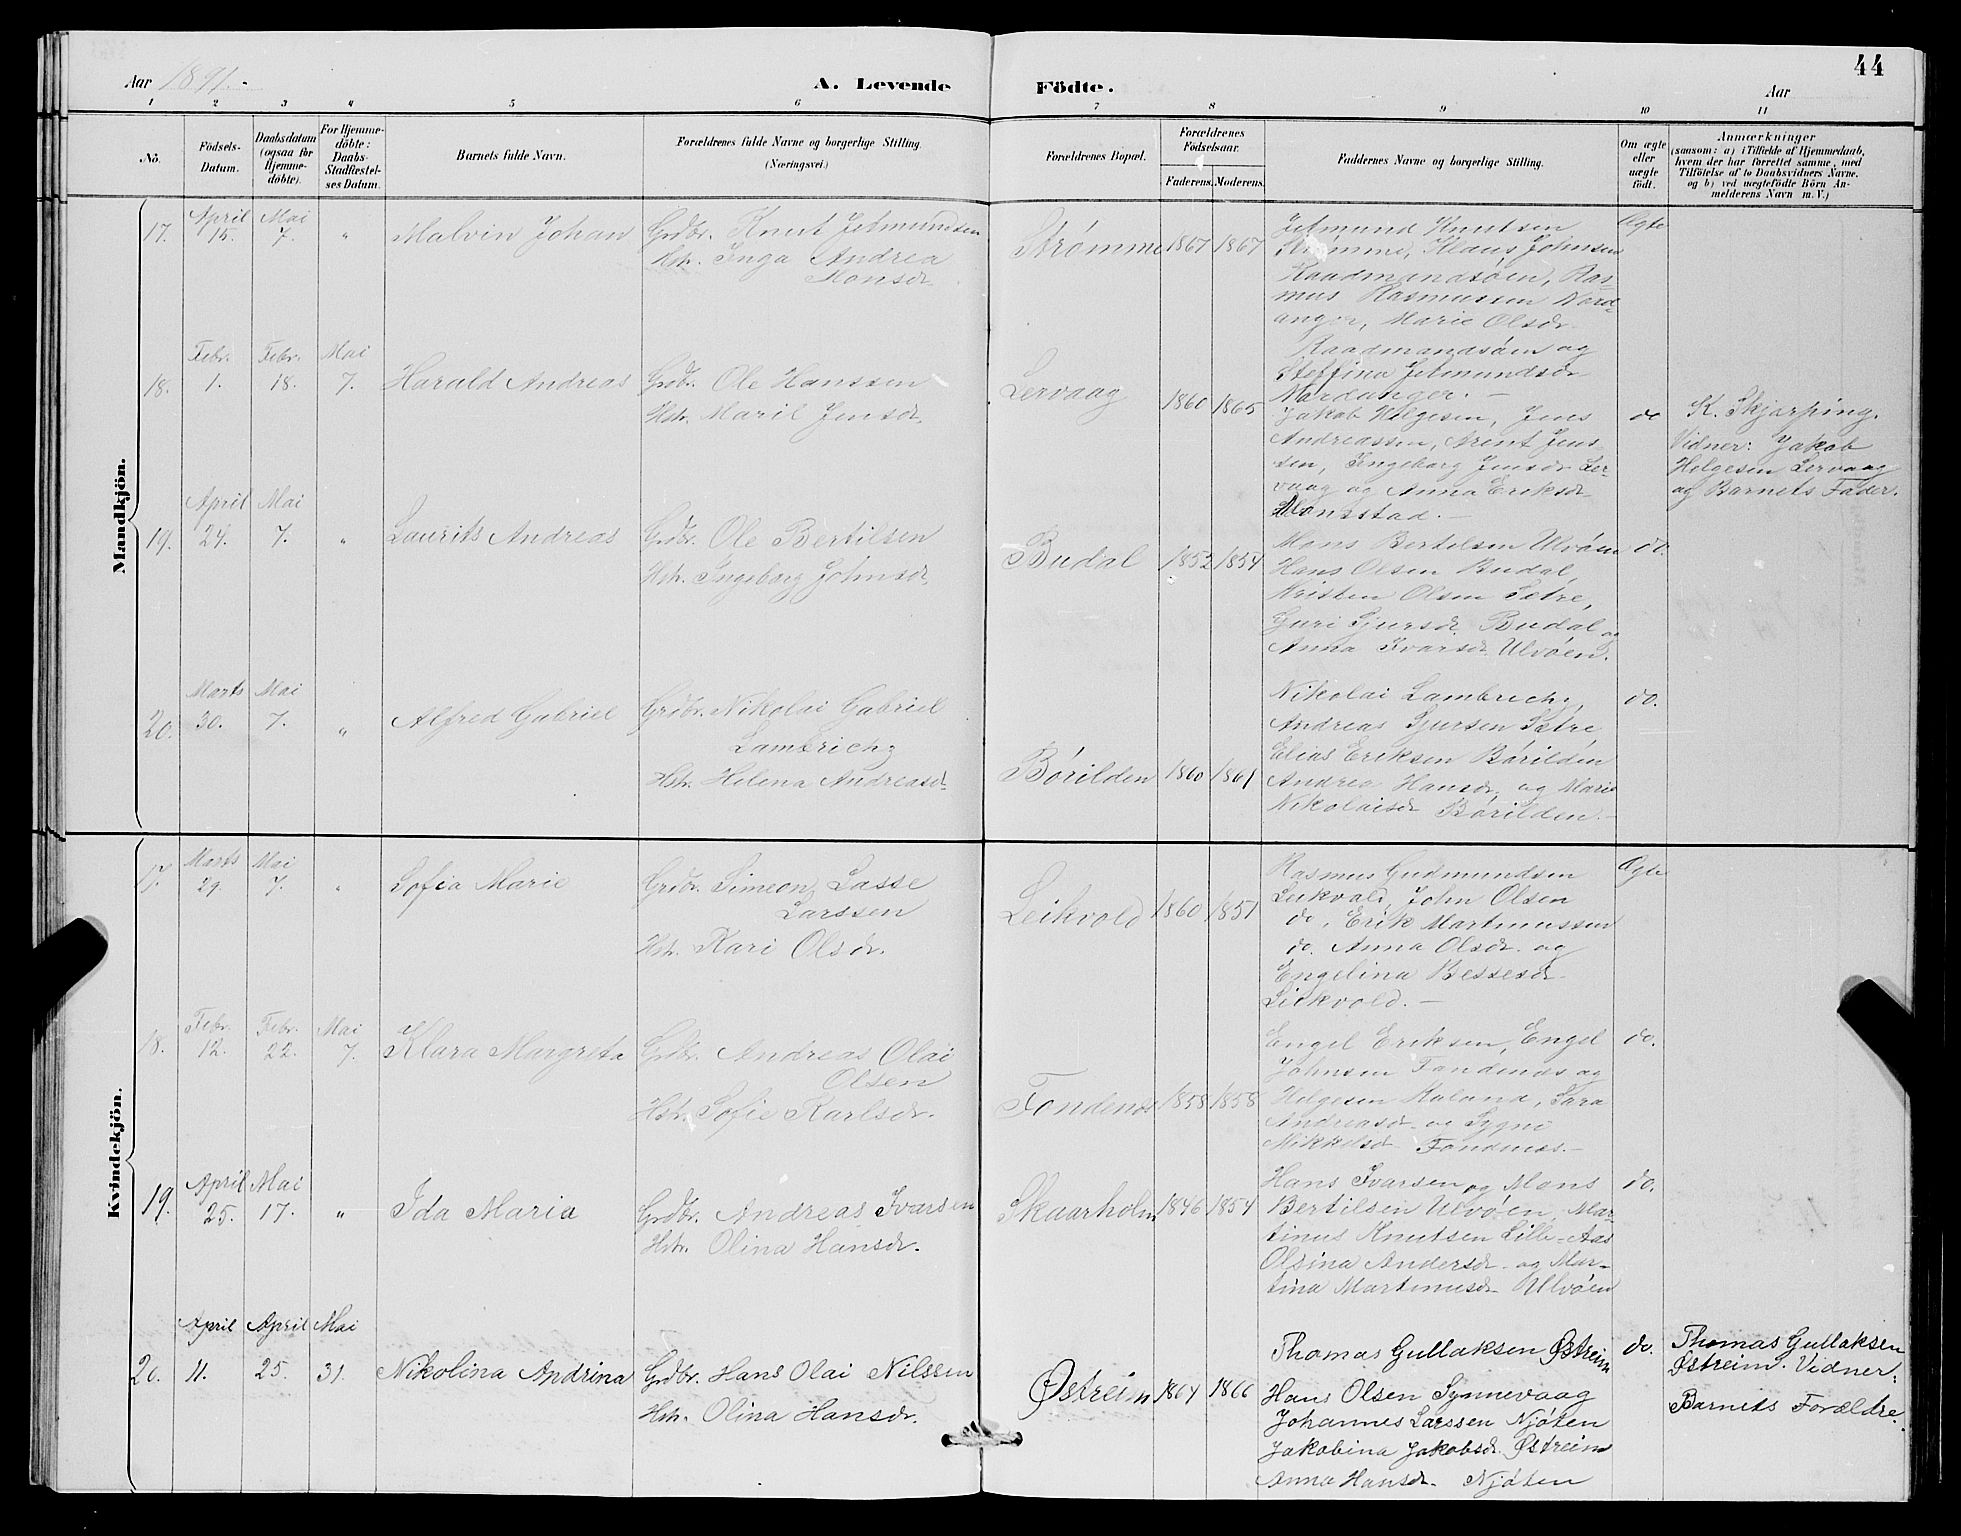 44
Aar 1891.
A. Levende Födte.
Aar
1 2 3 4 5 6 7 8 9 10 11
No.
Födsels-Datum.
Daabsdatum (ogsaa for Hjemme-döbte).
For Hjemme-döbte: Daabs-Stadfæstelses Datum.
Barnets fulde Navn.
Forældrenes fulde Navne og borgerlige Stilling.
(Næringsvei.)
Forældrenes Bopæl.
Forældrenes Födselsaar.
Faderens. Moderens.
Faddernes Navne og borgerlige Stilling.
Om ægte eller uægte födt.
Anmærkninger
(saasom: a) i Tilfælde af Hjemmedaab,
hvem der har forrettet samme, med
Tilföielse af to Daabsvidners Navne.
og b) ved uægtefödte Börn An-
melderens Navn m. V.)
Mandkjön.
17. April 15. Mai 7. " Malvin Johan
Grdbr. Knut Jetmundsen
Hstr. Inga Andrea
Monsdr.
Strømme 1867 1867
Jetmund Knutsen
Strømme, Klaus Johnsen
Raadmandsöen, Ras-
mus Rasmussen Nord-
anger, Marie Olsdr.
Raadmandsöen og
Steffina Jetmundsdr
Nordanger. —
Ægte
18. Febr. 1. Febr. 18. Mai 7. Harald Andreas
Grdbr. Ole Hanssen
Hstr. Maril Jensdr.
Lervaag 1860 1865
Jakob Helgesen, Jens
Andreassen, Arent Jens-
sen, Ingeborg Jensdr Ler-
vaag og Anna Eriksdr
Monsstad. —
do
K. Skjerping.
Vidner: Jakob
Helgesen Lervaag
og Barnets Fader.
19. April 24. Mai 7. " Laurits Andreas
Grdbr. Ole Bertilsen
Hstr. Ingeborg Johnsdr.
Budal 1852 1854
Mons Bertelsen Ulvöen
Hans Olsen Budal,
Kristen Olsen Sætre,
Guri Sjursdr. Budal og
Anna Ivarsdr. Ulvöen.
do.
20. Marts 30. Mai 7. " Alfred Gabriel
Grdbr. Nikolai Gabriel
Lambrich
Hstr. Helena Andreasdr.
Börilden 1860 1861
Nikolai Lambrich,
Andreas Sjursen Sætre
Elias Eriksen Börilden
Andrea Hansdr. og Marie
Nikolaisdr Börilden. —
do.
Kvindekjön.
17. Marts 29. Mai 7. " Sofia Marie
Grdbr. Simeon Lasse
Larssen
Hstr. Kari Olsdr.
Leikvold 1860 1851
Rasmus Gudmundsen
Leikvold, John Olsen
do, Erik Martinussen
do. Anna Olsdr. og
Engelina Bessesdr
Leikvold. —
Ægte
18. Febr. 12. Febr. 22. Mai 7. Klara Margreta
Grdbr. Andreas Olai
Olsen
Hstr. Sofie Karlsdr.
Fondenæs 1858 1858
Engel Eriksen, Engel
Johnsen Fondenæs og
Helgesen Kaland, Sara
Andreasdr. og Sygni
Mikkelsdr Fondnæs. —
do.
19. April 25. Mai 17. " Ida Maria
Grdbr. Andreas Ivarsen
Hstr. Olina Hansdr.
Skaarholm 1846 1854
Hans Ivarsen og Mons
Bertilsen Ulvöen, Mar-
tinus Knutsen Lille-Aas
Olsina Andersdr og Mar-
tina Martinusdr Ulvöen
do.
20. April 11. April 25. Mai 31. Nikolina Andrina
Grdbr. Hans Olai Nilssen
Hstr. Olina Hansdr.
Østreim 1864 1866
Thomas Gullaksen Østreim
Hans Olsen Synnevaag
Johannes Larssen Njöten
Jakobina Jakobsdr. Østreim
Anna Hansdr. Njöten
do.
Thomas Gullaksen
Østreim. Vidner:
Barnets Forældre.